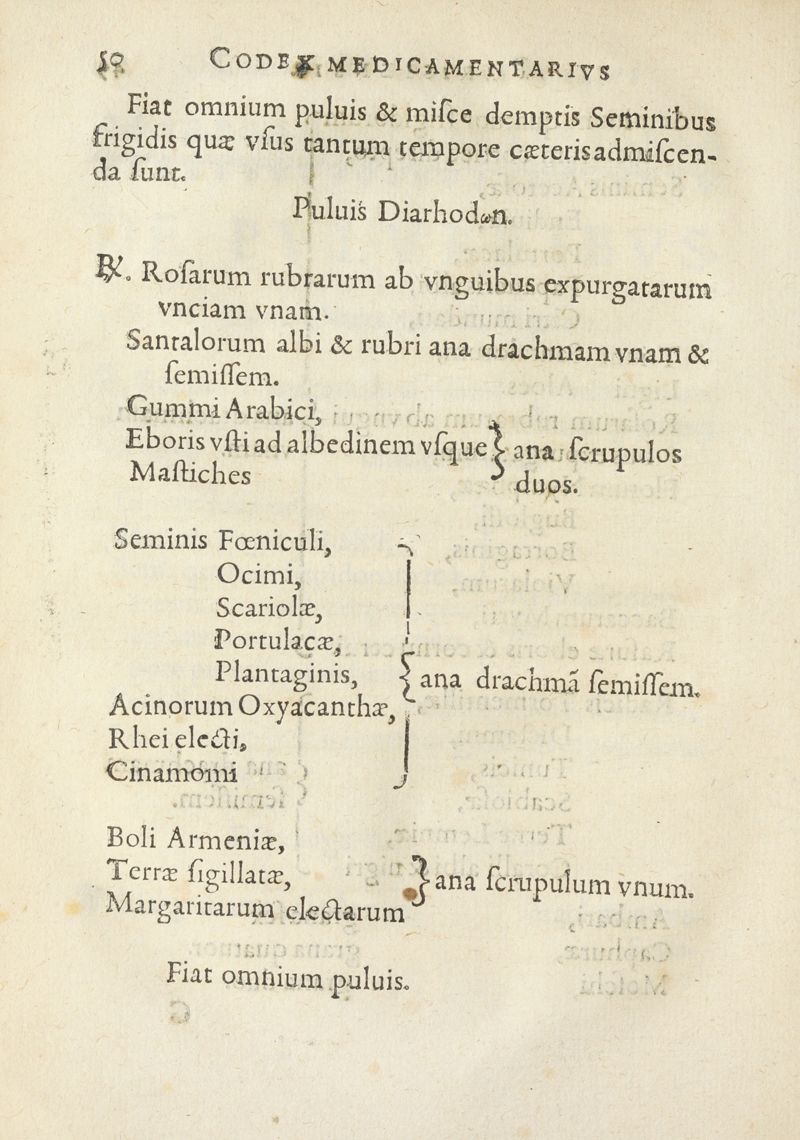 50 CODEX MEDICAMENTARIVS
Fiat omnium puluis & miſce demptis Seminibus
frigidis quæ vſus tantum tempore cæterisadmiſcen-
da ſunt.
Puluis Diarhodon.
℞. Roſarum rubrarum ab vnguibus expurgatarum
vnciam vnam.
Santalorum albi & rubri ana drachmam vnam &
ſemiſſem.
Gummi Arabici,
Eboris vſti ad albedinem vſque } ana ſcrupulos
Maſtiches duos.
Seminis Fœniculi,
Ocimi,
Scariolæ,
Portulacæ,
Plantaginis, } ana drachmã ſemiſſem.
Acinorum Oxyacanthæ,
Rhei electi,
Cinamomi
Boli Armeniæ,
Terræ ſigillatæ, } ana ſcrupulum vnum.
Margaritarum electarum
Fiat omnium puluis.